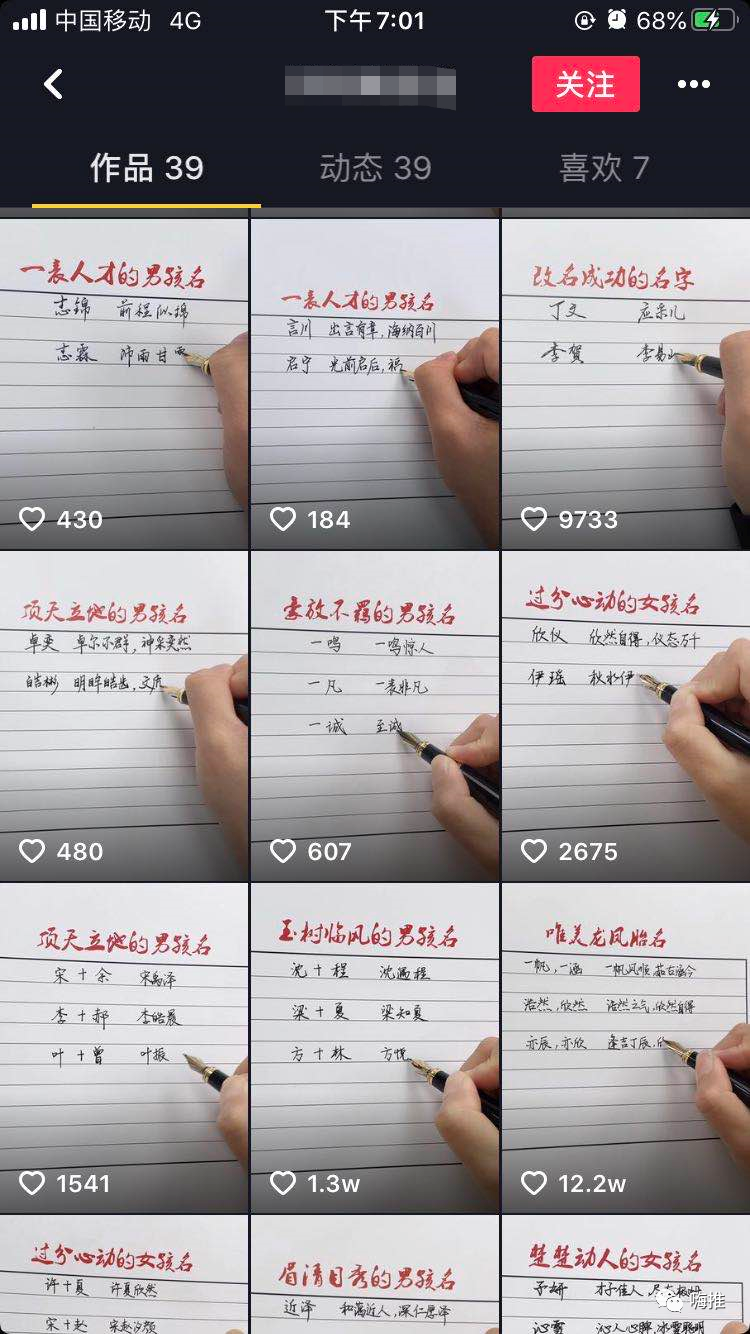 中国移动 4G 下午7:01 68%
关注
作品 39 动态 39 喜欢 7
一表人才的男孩名
志锦 前程似锦
志霖 沛雨甘
430
一表人才的男孩名
言川 出言有章,海纳百川
启宁 光前启后,福
184
改名成功的名字
丁文 应采儿
李贺 李易
9733
顶天立地的男孩名
卓奕 卓尔不群,神采奕然
皓彬 明眸皓齿,文质
480
豪放不羁的男孩名
一鸣 一鸣惊人
一凡 一表非凡
一诚 至诚
607
过分心动的女孩名
欣仪 欣然自得,仪态万千
伊瑶 秋水伊
2675
顶天立地的男孩名
宋十余 宋禹泽
李十郝 李皓晨
叶十曾 叶振
1541
玉树临风的男孩名
沈十程 沈温程
梁十夏 梁知夏
方十林 方悦
1.3w
唯美龙凤胎名
一帆,一涵 一帆风顺,茹古涵今
浩然,欣然 浩然之气,欣然自得
亦辰,亦欣 逢吉丁辰,欣
12.2w
过分心动的女孩名
许十夏 许夏欣然
宋十赵 宋赵汐颜
眉清目秀的男孩名
近泽 和蔼近人,深仁厚泽
楚楚动人的女孩名
子妍 才子佳人,
沁雪 沁人心脾,冰雪聪明
嗨推